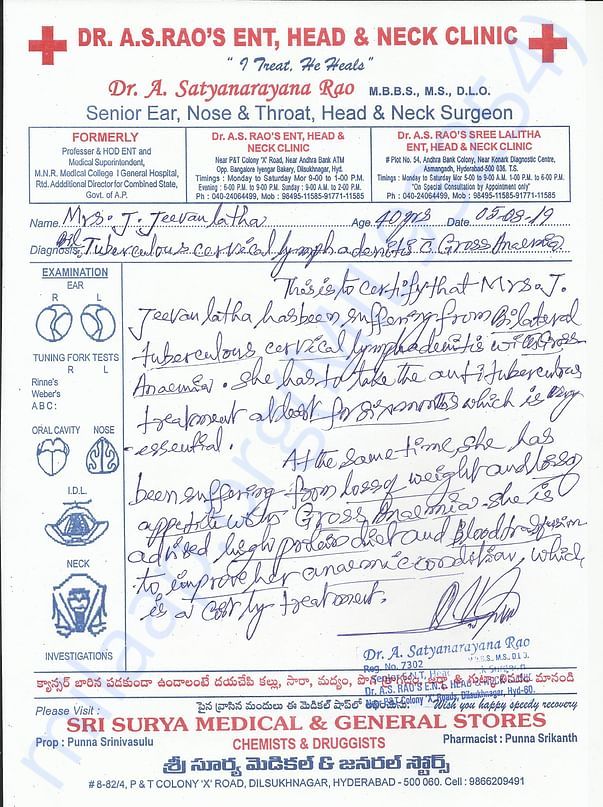 DR. A.S.RAO'S ENT, HEAD & NECK CLINIC
" I Treat, He Heals"
Dr. A. Satyanarayana Rao M.B.B.S., M.S., D.L.O.
Senior Ear, Nose & Throat, Head & Neck Surgeon
FORMERLY
Professer & HOD ENT and
Medical Superintendent,
M.N.R. Medical College I General Hospital,
Rtd. Additional Director for Combined State,
Govt. of A.P.
Dr. A.S. RAO'S ENT, HEAD &
NECK CLINIC
Near P&T Colony 'X' Road, Near Andhra Bank ATM
Opp. Bangalore Iyengar Bakery, Dilsuknagar, Hyd.
Timings : Monday to Saturday Mor 9-00 to 1-00 P.M.
Evening : 6-00 P.M. to 9-00 P.M. Sunday : 9-00 A.M. to 2-00 P.M.
Ph : 040-24064499, Mob : 98495-11585-91771-11585
Dr. A.S. RAO'S SREE LALITHA
ENT, HEAD & NECK CLINIC
# Plot No. 54, Andhra Bank Colony, Near Konark Diagnostic Centre,
Asmangadh, Hyderabad-500 036. T.S.
Timings : Monday to Saturday Mor 5-00 to 9-00 A.M. 1-00 P.M. to 6-00 P.M.
"On Special Consultation by Appointment only"
Ph : 040-24064499, Mob : 98495-11585-91771-11585
Name Mrs. J. Jeevan latha Age 40 yrs Date 05-08-19
Diagnosis Bil. Tuberculous cervical lymphadenitis c Gross Anaemia
EXAMINATION
EAR
R L
TUNING FORK TESTS
R L
Rinne's
Weber's
A B C :
ORAL CAVITY NOSE
I.D.L.
NECK
INVESTIGATIONS
This is to certify that Mrs. J.
Jeevan latha has been suffering from Bilateral
tuberculous cervical lymphadenitis with Gross
Anaemia. She has to take the anti tuberculous
treatment atleast for six months which is very
essential.
At the same time, she has
been suffering from loss of weight and loss of
appetite with Gross Anaemia. she is
advised high protein diet and Blood transfusion
to improve her anaemic condition, which
is a costly treatment.
Dr. A. Satyanarayana Rao
Reg. No. 7302 M.B.B.S., M.S., D.L.O.
Senior E.N.T, Head
Dr. A.S. RAO'S E.N.T, HEAD & NECK CLINIC
P&T Colony 'X' Roads, Dilsukhnagar, Hyd-60.
క్యాన్సర్ బారిన పడకుండా ఉండాలంటే దయచేసి కల్లు, సారా, మద్యం, & గుట్కా మానండి
Please Visit : పైన వ్రాసిన మందులు ఈ మెడికల్ షాప్‌లో Wish you happy speedy recovery
SRI SURYA MEDICAL & GENERAL STORES
Prop : Punna Srinivasulu CHEMISTS & DRUGGISTS Pharmacist : Punna Srikanth
శ్రీ సూర్య మెడికల్ & జనరల్ స్టోర్స్
# 8-82/4, P & T COLONY 'X' ROAD, DILSUKHNAGAR, HYDERABAD - 500 060. Cell : 9866209491